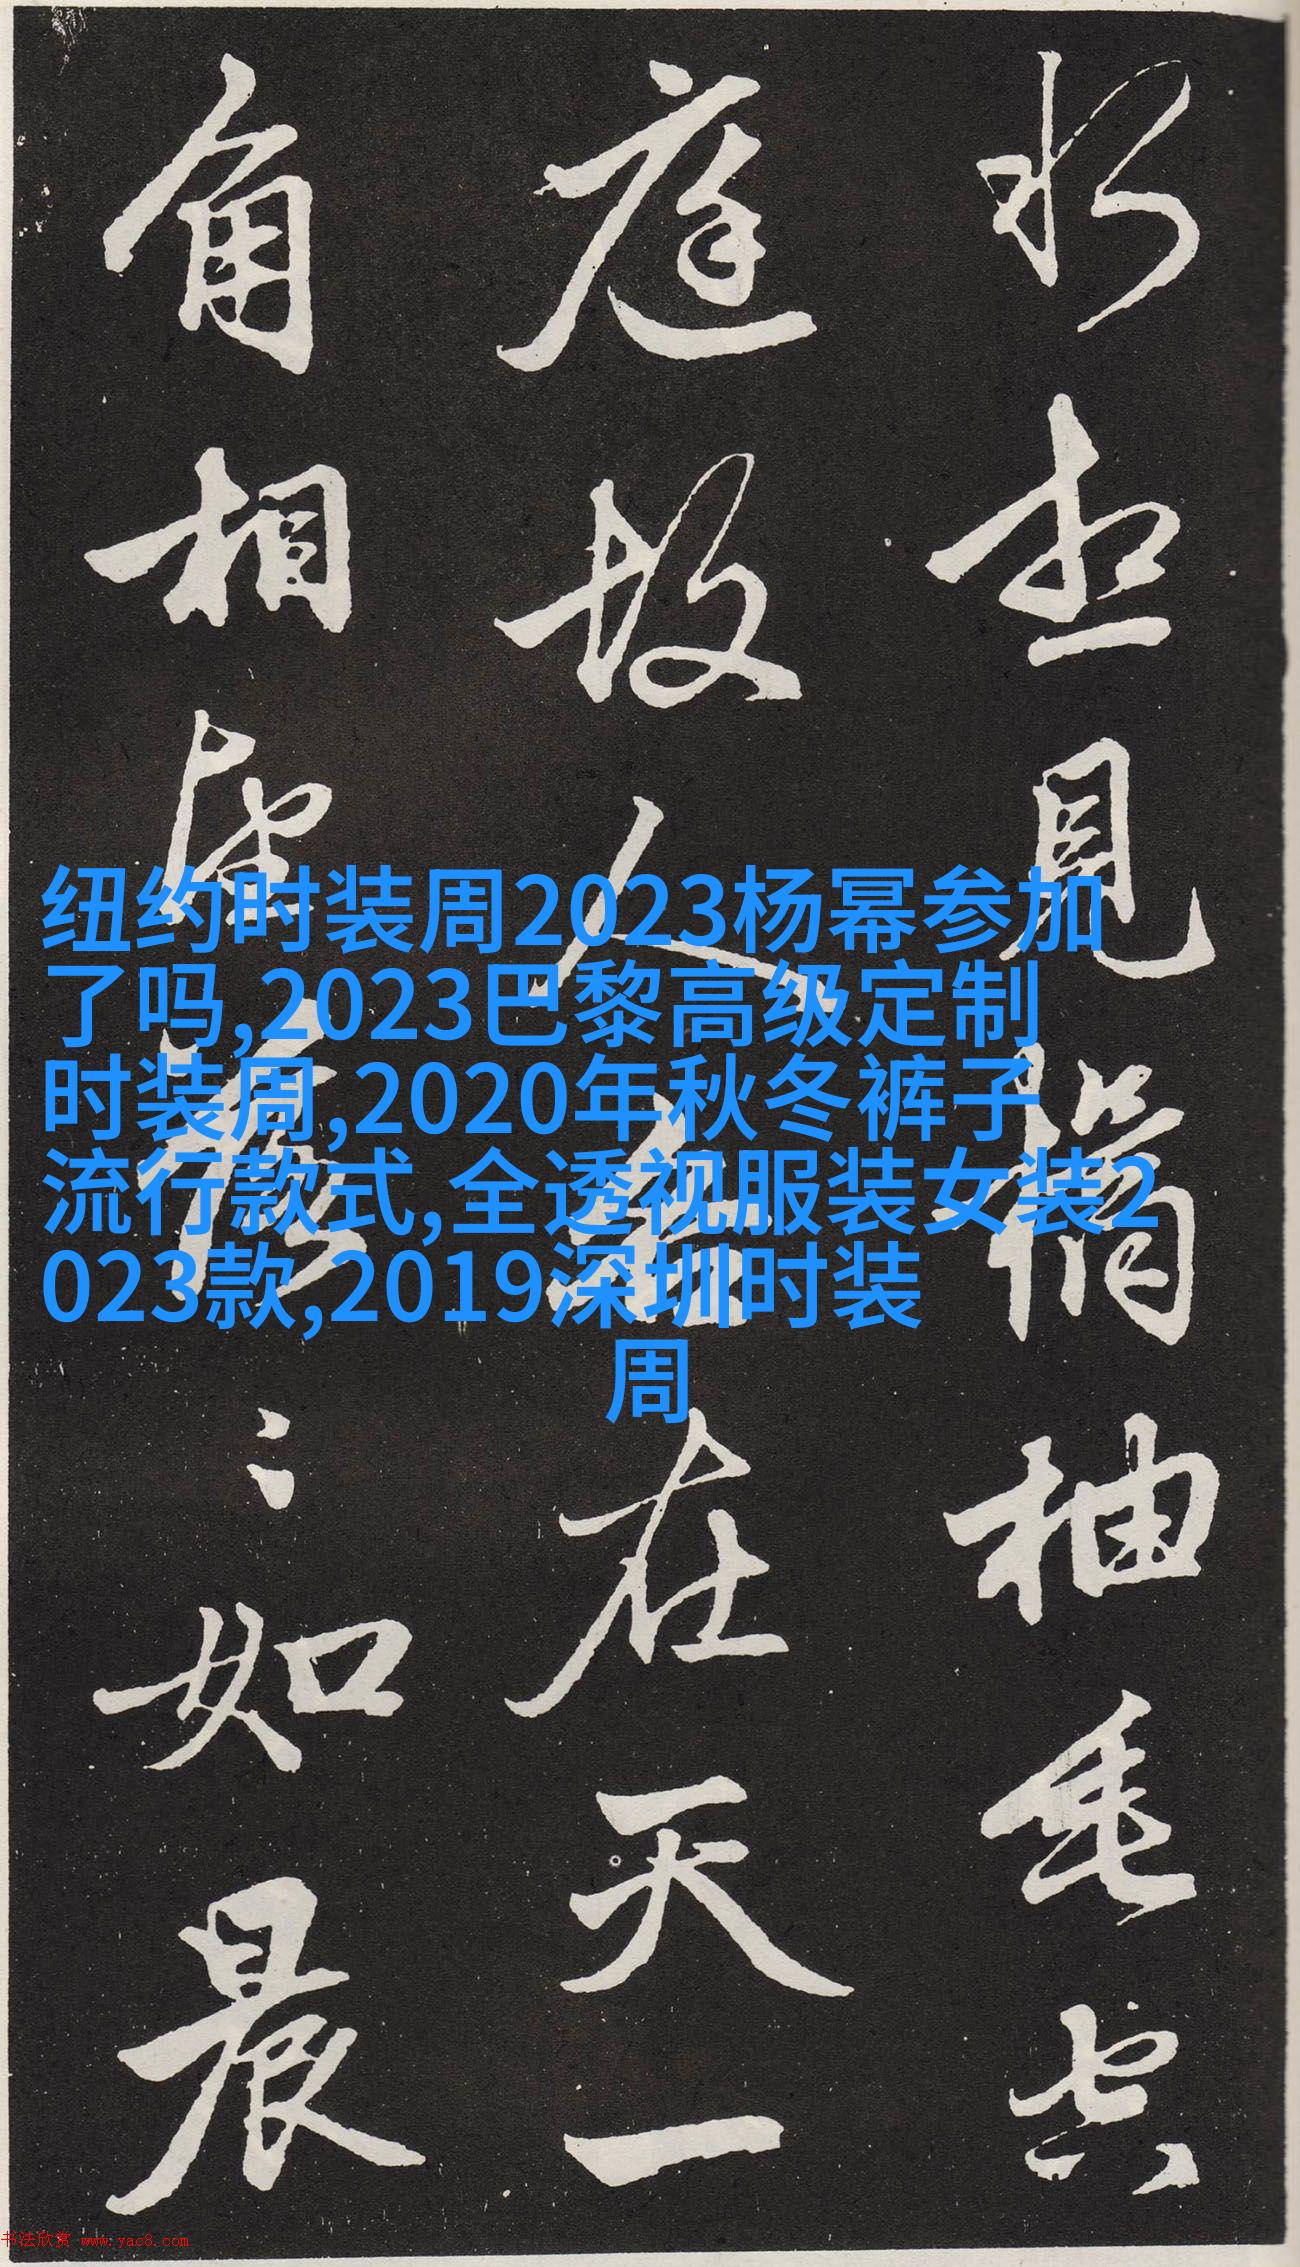 想見橘柚垂空
庭故人各在天一
角相望落〻如晨
纽约时装周2023杨幂参加
了吗,2023巴黎高级定制
时装周,2020年秋冬裤子
流行款式,全透视服装女装2
023款,2019深圳时装
周
书法欣赏 www.yac8.com